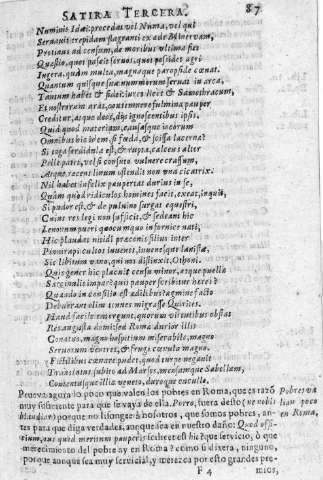 SATIRA TERCERA. 87
Numinis Idæi: procedat vel Numa, vel qui
Seruauit trepidam flagranti ex æde Mineruam,
Protinus ad censum, de moribus vltima fiet
Quæstio, quot pascit seruos, quot possidet agri
Iugera, quàm multa, magnaque paropside cœnat.
Quantum quisque sua nummorum seruat in arca,
Tantum habet & fidei: iures licet & Samothracum,
Et nostrorum aras, contemnere fulmina pauper
Creditur, atque deos, dijs ignoscentibus ipsis.
Quid quod materiam, causasque iocorum
Omnibus hic idem, si fœda, & scissa lacerna?
Si toga sordidula est, & rupta calceus alter
Pelle patet, vel si consuto vulnere crassum,
Atque recens linum ostendit non vna cicatrix.
Nil habet infelix paupertas durius in se,
Quàm quod ridiculos homines facit, exeat, inquit,
Si pudor est, & de puluino surgat equestri,
Cuius res legi non sufficit, & sedeant hic
Lenonum pueri quocumque in fornice nati;
Hic plaudat nitidi præconis filius inter
Pinnirapi cultos iuuenes, iuuenesque lanistæ,
Sic libitum vano, qui nos distinxit, Othoni.
Quis gener hic placuit censu minor, atque puellæ
Sarcinulis impar? quis pauper scribitur heres?
Quando in consilio est ædilibus? agmine facto
Debuerant olim tenues migrasse Quirites.
Haud facile emergunt, quorum virtutibus obstat
Res angusta domi: sed Romæ durior illis
Conatus, magno hospitium miserabile, magno
Seruorum ventres, & frugi cœnula magno.
Fictilibus cœnare pudet, quod turpe negauit
Translatus subito ad Marsos, mensamque Sabellam,
Contentusque illic veneto, duroque cucullo.
Prueua agora lo poco que valen los pobres en Roma, que es razõ
muy suficiente para que se vaya de ella. Porro, fuera desto (ne nobis
blandiar) porque no lisongee à nosotros, que somos pobres, an-
tes para que diga verdades, aunque sea en nuestro daño: Quod offi-
cium, aut quod meritum pauperis scilicet est hic? que seruicio, ò que
merecimiento del pobre ay en Roma? como si dixera, ninguno,
porque aunque sea muy seruicial, y merezca por esto grandes pre-
F 4 mios,
Pobres va
lian poco
en Roma,